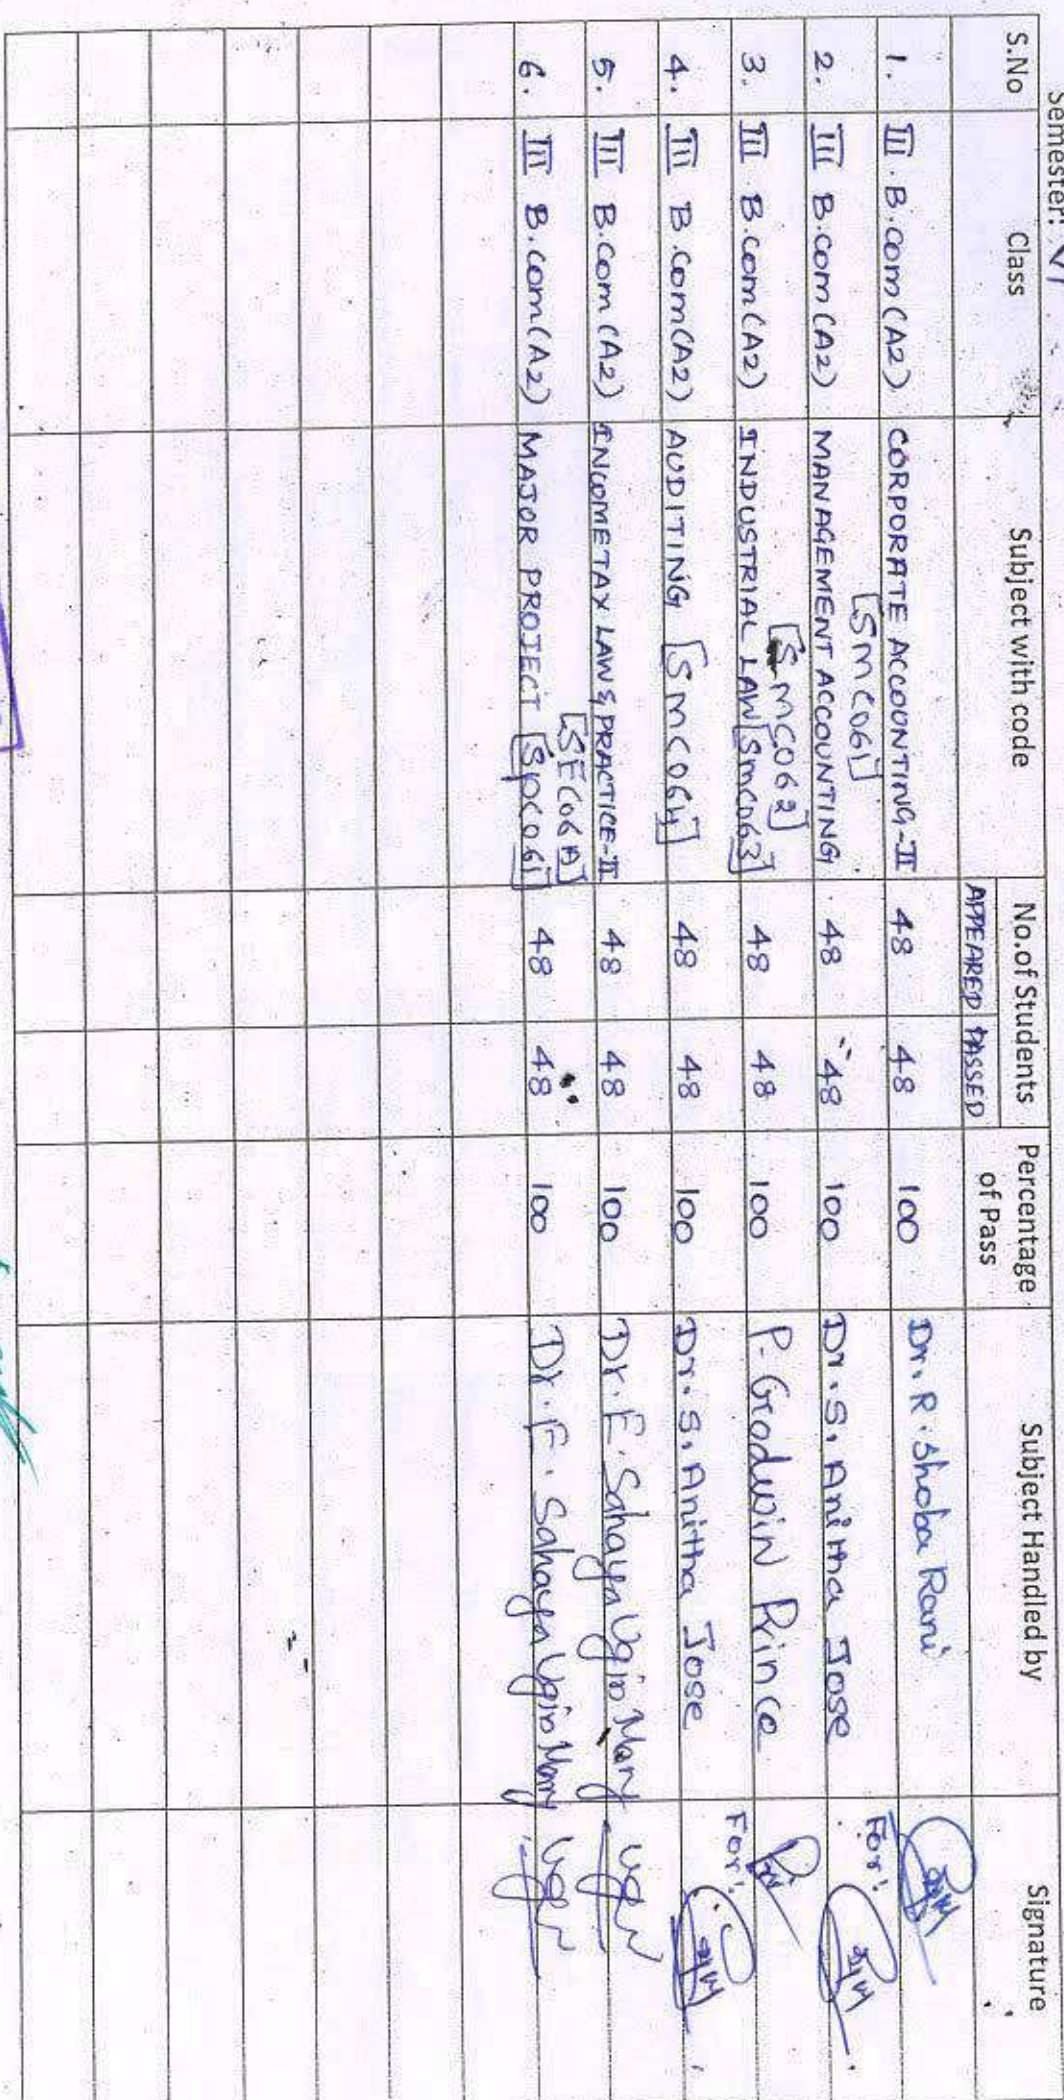 Semester: VI
S.No Class Subject with code No.of Students Percentage of Pass Subject Handled by Signature
APPEARED PASSED
1. III B.com (A2) CORPORATE ACCOUNTING-II 48 48 100 Dr. R. Shoba Rani
[SMC061]
2. III B.com (A2) MANAGEMENT ACCOUNTING 48 48 100 Dr. S. Anitha Jose For:
[SMC062]
3. III B.com (A2) INDUSTRIAL LAW [SMC063] 48 48 100 P. Godwin Prince
4. III B.com (A2) AUDITING [SMC064] 48 48 100 Dr. S. Anitha Jose For:
5. III B.com (A2) INCOMETAX LAW & PRACTICE-II 48 48 100 Dr. F. Sahaya Ugin Mary
[SEC06A]
6. III B.com (A2) MAJOR PROJECT [SPC061] 48 48 100 Dr. F. Sahaya Ugin Mary